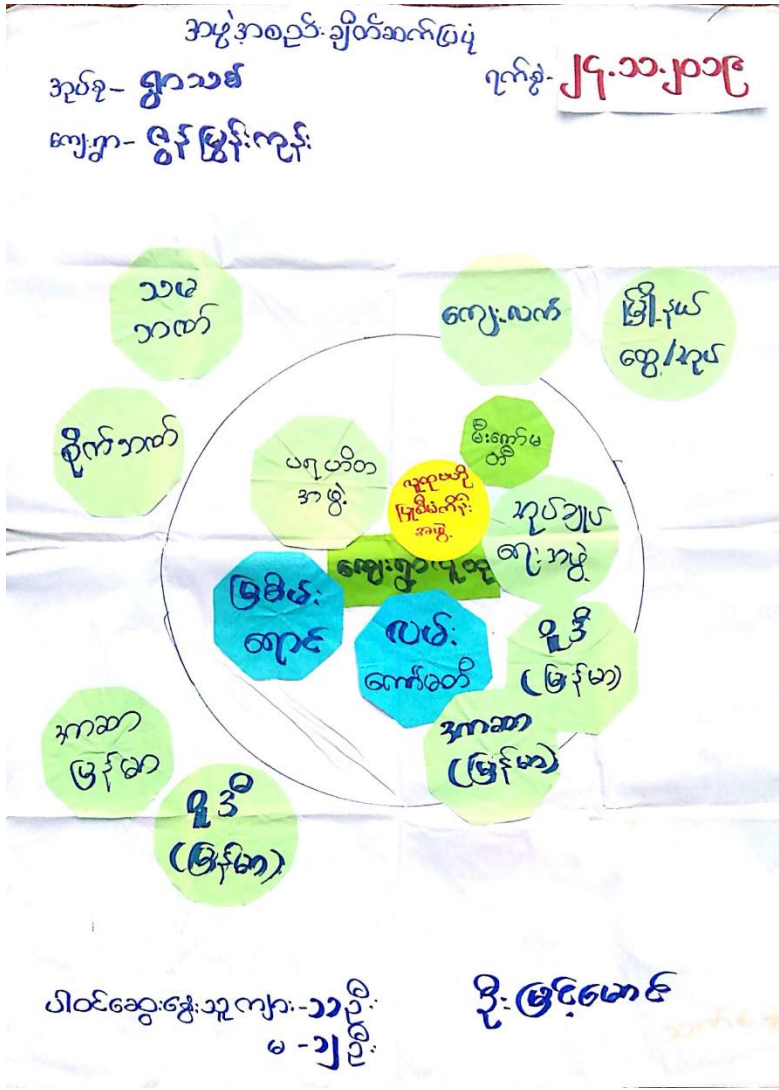 အဖွဲ့အစည်းချိတ်ဆက်ပြပုံ
အုပ်စု- ရွာသစ်
ရက်စွဲ- ၂၄.၁၁.၂၀၁၉
ကျေးရွာ- ဇွန်မြွန်းကုန်း
သမ
ဘဏ်
ကျေးလက်
မြို့နယ်
ထွေ/အုပ်
စိုက်ဘဏ်
ပရဟိတ
အဖွဲ့
မီးကော်မ
တီ
လူထုဗဟို
ပြုစီမံကိန်း
အဖွဲ့
အုပ်ချုပ်
ရေးအဖွဲ့
ကျေးရွာလူထု
မြစိမ်း
ရောင်
လမ်း
ကော်မတီ
ဂူဒီ
(မြန်မာ)
အာဆာ
(မြန်မာ)
အာဆာ
မြန်မာ
ဂူဒီ
(မြန်မာ)
ပါဝင်ဆွေးနွေးသူ ကျား-၁၁ဦး
မ -၁၂ဦး
ဦးမြင့်မောင်